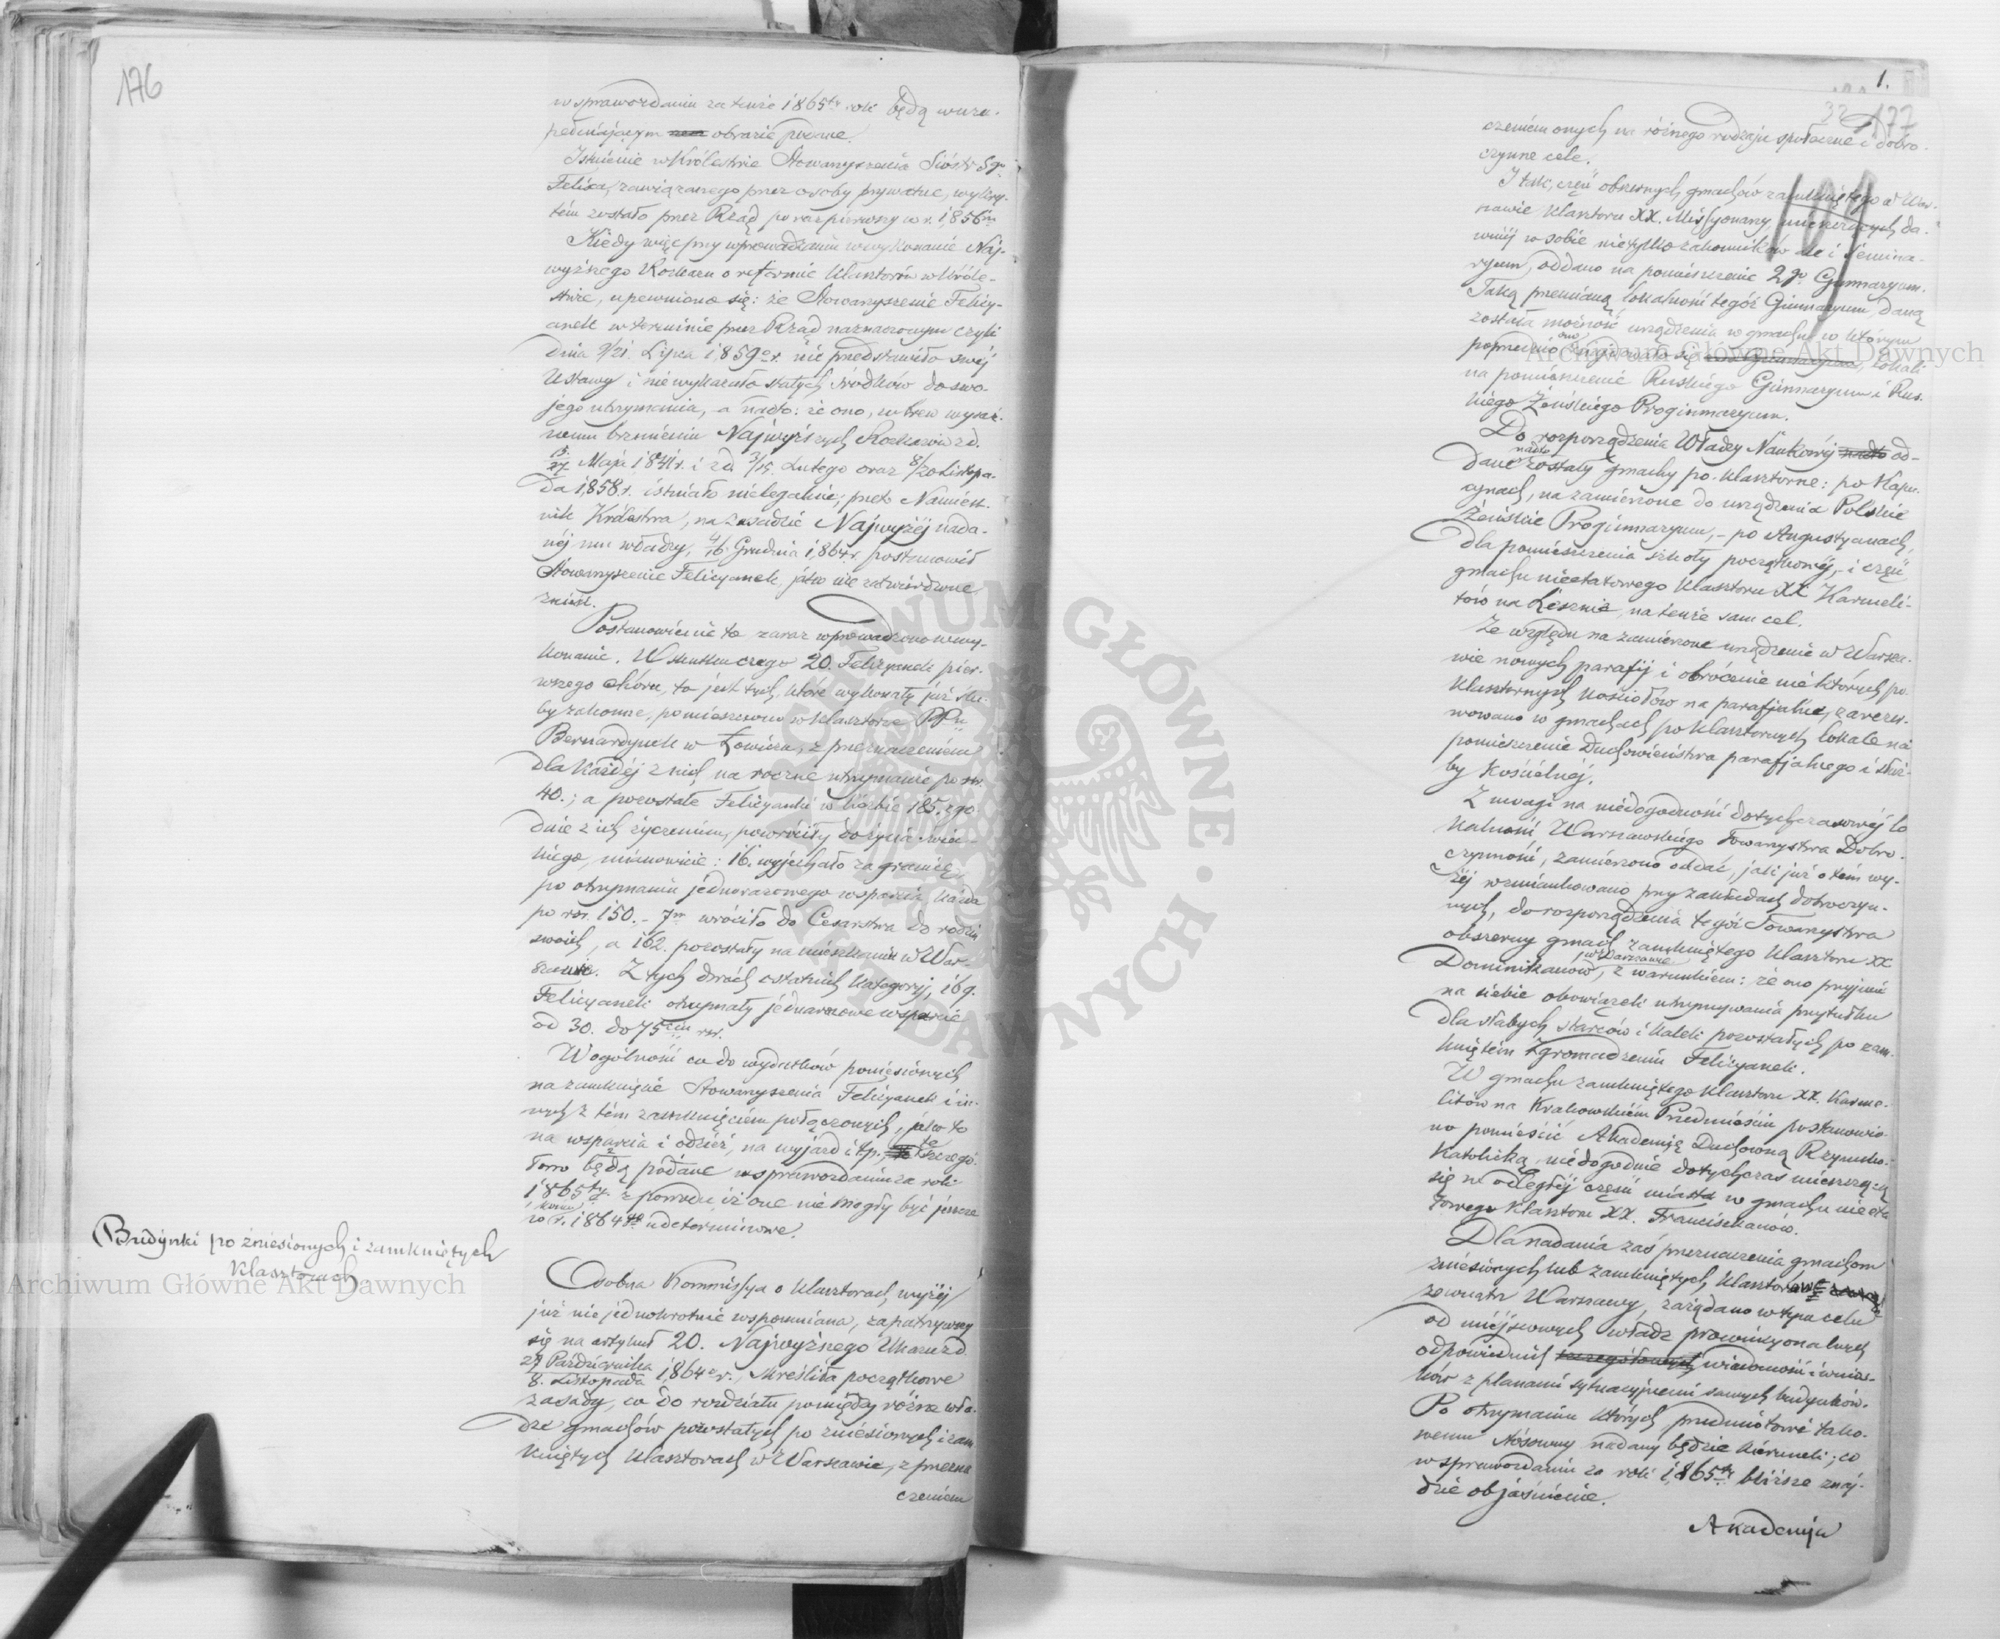 176
w sprawozdaniu za tenże 1865ty rok będą w uzu-
pełniającym obrazie podane.
Istnienie w Królestwie Stowarzyszenia Sióstr Sgo
Felixa, zawiązanego przez osoby prywatne, wykry-
tém zostało przez Rząd po raz pierwszy w r. 1856m
Kiedy więc przy wprowadzaniu w wykonanie Naj-
wyższego Ukazu o reformie Klasztorów w Króle-
stwie, upewniono się: że Stowarzyszenie Felicy-
anek w terminie przez Rząd naznaczonym czyli
dnia 9/21. Lipca 1859o r. nie przedstawiło swéj
Ustawy i nie wykazało stałych środków do swo-
jego utrzymania, a nadto: że ono, wbrew wyraź-
nemu brzmieniu Najwyższych Rozkazów z d.
15/27 Maja 1841 r. i z d. 3/15 Lutego oraz 8/20 Listopa-
da 1858 r. istniało nielegalnie; przeto Namiest-
nik Królestwa, na zasadzie Najwyżéj nada-
néj mu władzy, 4/16 Grudnia 1864 r. postanowił
Stowarzyszenie Felicyanek, jako nie zatwierdzone
znieść.
Postanowienie to zaraz wprowadzono w wy-
konanie. W skutku czego 20. Felicyanek pier-
wszego Chóru, to jest tych, które wykonały już ślu-
by zakonne, pomieszczono w Klasztorze PPn
Bernardynek w Łowiczu, z przeznaczeniem
dla każdéj z nich na roczne utrzymanie po rsr.
40.; a pozostałe Felicyanki w liczbie 185. zgo-
dnie z ich życzeniem, powróciły do życia świec-
kiego, mianowicie: 16. wyjechało za granicę
po otrzymaniu jednorazowego wsparcia każda
po rsr. 150. - 7m wróciło do Cesarstwa do rodzin
swoich, a 162. pozostały na mieszkaniu w War-
szawie. Z tych dwóch ostatnich Kategoryj, 169.
Felicyanek otrzymały jednorazowe wsparcie
od 30. do 75ciu rsr.
W ogólności co do wydatków poniesionych
na zamknięcie Stowarzyszenia Felicyanek i in-
nych z tém zamknięciem połączonych, jako to
na wsparcia i odzież, na wyjazd i t.p., te szczegó-
łowo będą podane w sprawozdaniu za rok
1865ty z powodu, iż one nie mogły być jeszcze
w końcu r. 1864go udeterminowane.
Budynki po zniesionych i zamkniętych
Klasztorach
Osobna Kommissya o Klasztorach, wyżéj
już nie jednokrotnie wspomniana, zapatrywszy
się na artykuł 20. Najwyższego Ukazu z d.
27 Października/8. Listopada 1864o r., skreśliła początkowe
zasady, co do rozdziału pomiędzy różne wła-
dze gmachów pozostałych po zniesionych i zam-
kniętych Klasztorach w Warszawie, z przezna
czeniem
1.
177
czeniem onych na różnego rodzaju społeczne i dobro-
czynne cele.
I tak, część obszernych gmachów zamkniętego w War-
szawie Klasztoru XX. Missyonarzy, mieszczących da-
wniéj w sobie nie tylko zakonników ale i Semina-
ryum, oddano na pomieszczenie 2go Gimnazyum.
Taką przemianą lokalności tegoż Gimnazyum daną
została możność urządzenia w gmachu w którym
poprzednio ono znajdowało się, lokali
na pomieszczenie Ruskiego Gimnazyum i Rus-
kiego Żeńskiego Progimnazyum.
Do rozporządzenia Władzy Naukowéj od-
dane nadto zostały gmachy po-klasztorne: po Kapu-
cynach, na zamierzone do urządzenia Polskie
Żeńskie Progimnazyum, - po Augustyanach,
dla pomieszczenia szkoły początkowéj, - i część
gmachu nieetatowego Klasztoru XX Karmeli-
tów na Lesznie, na tenże sam cel.
Ze względu na zamierzone urządzenie w Warsza-
wie nowych parafij i obrócenie niektórych po-
klasztornych kościołów na parafialne, zarezer-
wowano w gmachach po klasztornych lokale na
pomieszczenie Duchowieństwa parafjalnego i służ-
by kościelnéj.
Z uwagi na niedogodność dotychczasowéj lo-
kalności Warszawskiego Towarzystwa Dobro-
czynności, zamierzono oddać, jak już o tém wy-
żéj wzmiankowano przy zakładach dobroczyn-
nych, do rozporządzenia tegoż Towarzystwa
obszerny gmach zamkniętego Klasztoru XX
Dominikanów, w Warszawie z warunkiem: że ono przyjmie
na siebie obowiązek utrzymywania przytułku
dla słabych starców i kalek pozostałych po zam-
kniętém Zgromadzeniu Felicyanek.
W gmachu zamkniętego Klasztoru XX. Karme-
litów na Krakowskiém Przedmieściu postanowio-
no pomieścić Akademię Duchowną Rzymsko-
Katolicką, niedogodnie dotychczas mieszczącą
się w odległéj części miasta w gmachu nieeta-
towego Klasztoru XX. Franciszkanów.
Dla nadania zaś przeznaczenia gmachom
zniesionych lub zamkniętych Klasztorów
zewnątrz Warszawy, zażądano w tym celu
od miejscowych władz prowincyonalnych
odpowiednich wiadomości i wnios-
ków z planami sytuacyjnemi samych budynków.
Po otrzymaniu których, przedmiotowi tako-
wemu stósowny nadany będzie kierunek; co
w sprawozdaniu za rok 1865ty bliższe znaj-
dzie objaśnienie.
Akademja
Archiwum Główne Akt Dawnych
Archiwum Główne Akt Dawnych
ARCHIWUM GŁÓWNE AKT DAWNYCH